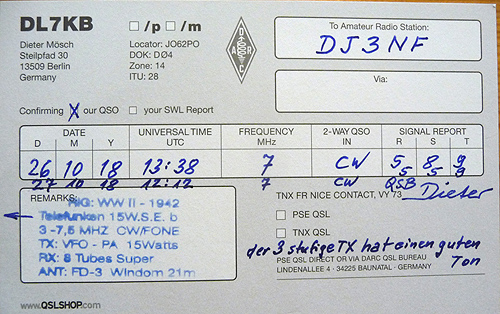 DL7KB
/p /m
Dieter Mösch
Steilpfad 30
13509 Berlin
Germany
Locator: JO62PO
DOK: DØ4
Zone: 14
ITU: 28
DARC
To Amateur Radio Station:
DJ3NF
Via:
Confirming X our QSO your SWL Report
DATE UNIVERSAL TIME FREQUENCY 2-WAY QSO SIGNAL REPORT
D M Y UTC MHz IN R S T
26 10 18 13:38 7 CW 5 8 9
27 10 18 12:12 7 CW 5 5 9
QSB
REMARKS:
RIG: WW II - 1942
Telefunken 15W.S.E. b
3 -7,5 MHZ CW/FONE
TX: VFO - PA 15Watts
RX: 8 Tubes Super
ANT: FD-3 Windom 21m
TNX FR NICE CONTACT, VY 73, Dieter
PSE QSL
TNX QSL
der 3 stufige TX hat einen guten
Ton
PSE QSL DIRECT OR VIA DARC QSL BUREAU
LINDENALLEE 4 - 34225 BAUNATAL - GERMANY
www.QSLSHOP.com